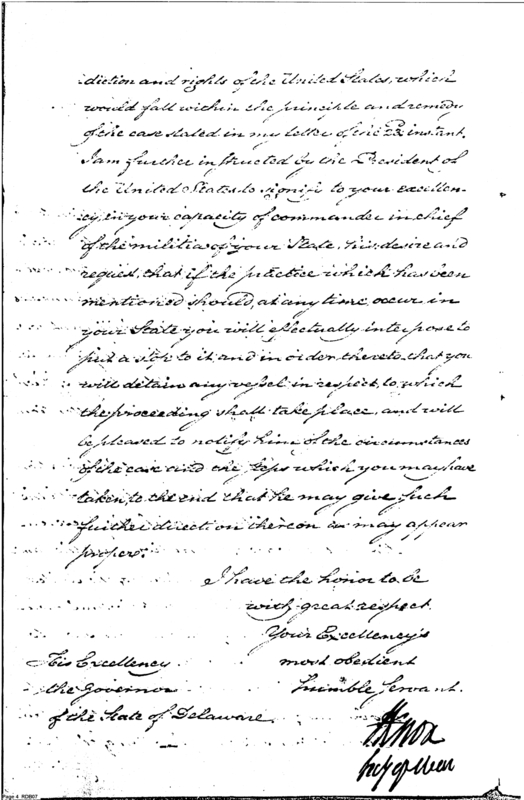 diction and rights of the United States, which
would fall within the principle and remedy
of the case stated in my letter of the instant.
I am further instructed by the President of
the United States to signify to your excellen-
cy, in your capacity of commander in chief
of the militia of your State, his desire and
request, that if the practice which has been
mentioned should, at any time, occur in
your State you will effectually interpose to
put a stop to it and in order thereto that you
will detain any vessel in respect to which
the proceeding shall take place, and will
be pleased to notify him of the circumstances
of the case and the steps which you may have
taken, to the end that he may give such
further direction thereon as may appear
proper.
I have the honor to be
with great respect
Your Excellency's
most obedient
humble Servant.
His Excellency
the Governor
of the State of Delaware
H Knox
Secy of War
Page 4 RDB07